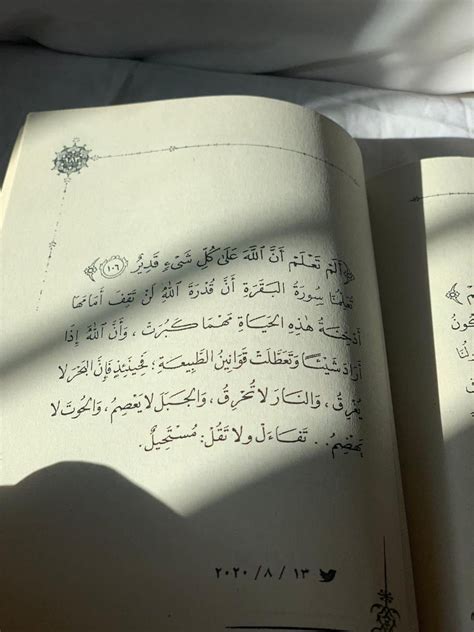 ﴿أَلَمْ تَعْلَمْ أَنَّ ٱللَّهَ عَلَىٰ كُلِّ شَىْءٍ قَدِيرٌ ١٠٦﴾
تُعَلِّمُنَا سُورَةُ البَقَرَةِ أَنَّ قُدْرَةَ اللَّهِ لَنْ تَقِفَ أَمَامَهَا
هَٰذِهِ الحَيَاةِ مَهْمَا كَبُرَتْ، وَأَنَّ اللَّهَ إِذَا
أَرَادَ شَيْئًا تَعَطَّلَتْ قَوَانِينُ الطَّبِيعَةِ؛ فَحِينَئِذٍ فَإِنَّ البَحْرَ لَا
يُغْرِقُ، وَالنَّارَ لَا تُحْرِقُ، وَالجَبَلَ لَا يَعْصِمُ، وَالحُوتَ لَا
يَهْضِمُ.. تَفَاءَلْ وَلَا تَقُلْ: مُسْتَحِيلٌ.
٢٠٢٠/٨/١٣